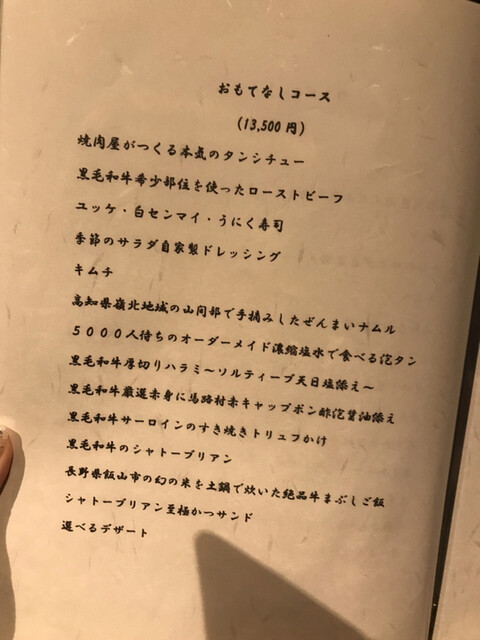 おもてなしコース
(13,500円)
焼肉屋がつくる本気のタンシチュー
黒毛和牛希少部位を使ったローストビーフ
ユッケ・白センマイ・うにく寿司
季節のサラダ自家製ドレッシング
キムチ
高知県嶺北地域の山間部で手摘みしたぜんまいナムル
5000人待ちのオーダーメイド濃縮塩水で食べる泡タン
黒毛和牛厚切りハラミ～ソルティーブ天日塩添え～
黒毛和牛厳選赤身に馬路村赤キャップポン酢泡醤油添え
黒毛和牛サーロインのすき焼きトリュフかけ
黒毛和牛のシャトーブリアン
長野県飯山市の幻の米を土鍋で炊いた絶品牛まぶしご飯
シャトーブリアン至極かつサンド
選べるデザート